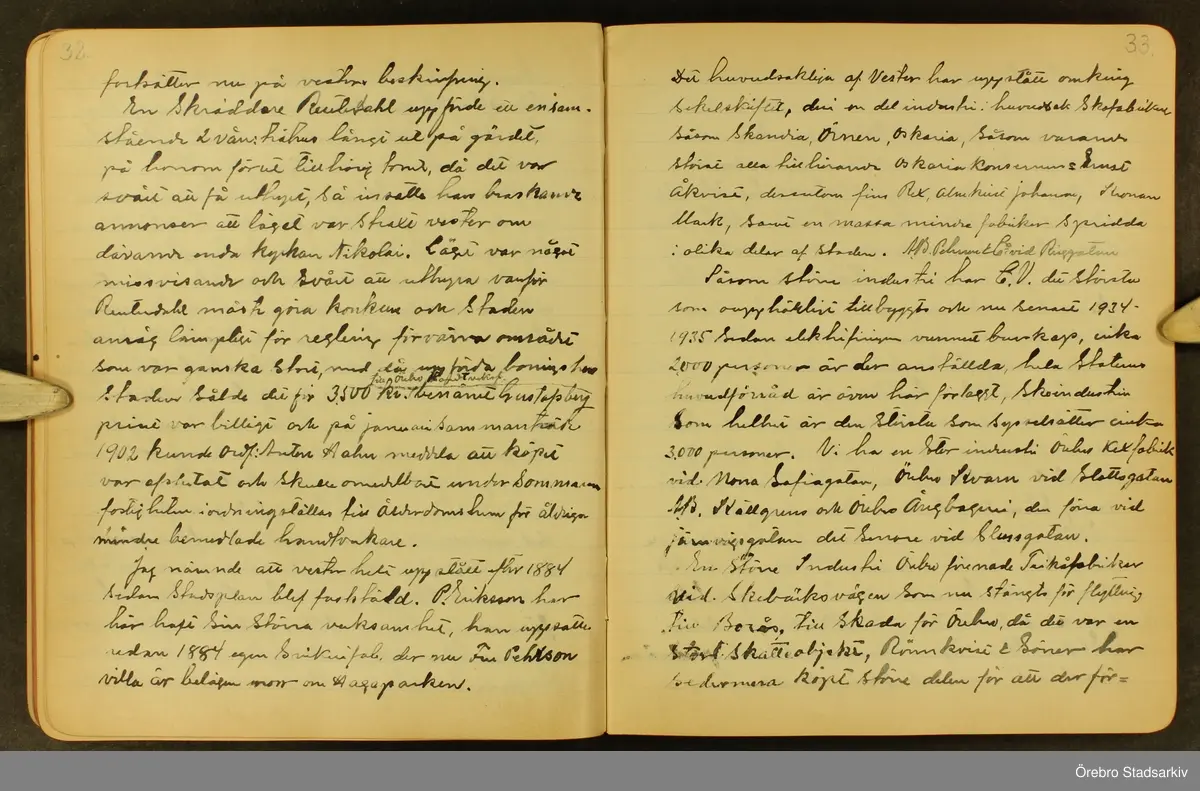 32.
fortsätter nu på vestra beskrifning.
En Skräddare Reuterdahl uppförde ett ensam-
stående 2 vån: trähus långt ut på gärdet,
på honom förut tillhörig tomt, då det var
svårt att få uthyrt, Så insatte han braskande
annonser att läget var Strax vester om
dåvarande enda kyrkan Nikolai. Läget var något
missvisande och Svårt att uthyra varför
Reuterdahl måste göra konkurs och Staden
ansåg lämpligt för reglering förvärva området
som var ganska Stort, med då uppförda boningshus
till Örebro Handtverksf.
Staden Sålde det för 3,500 Kr. benämt Gustafsberg
priset var billigt och på januari Sammanträde
1902 kunde Ordf: Anton Hahn meddela att köpet
var afslutat och Skulle omedelbart under Sommaren
fastigheten i ordningställas till Ålderdomshem för åldriga
mindre bemedlade handtverkare.
Jag nämde att vester helt uppstått efter 1884
Sedan Stadsplan blef fastställd. P. Eriksson har
här haft Sin Största verksamhet, han uppsatte
redan 1884 egen Snikerifab. der nu Fru Pehrson
villa är belägen norr om Hagaparken.
33.
Det huvudsakliga af Vester har uppstått omkring
Sekelskiftet, deri en del industri: huvudsak Skofabriker
Såsom Skandia, Örnen, Oskaria, Såsom varande
Störst alla tillhörande Oskaria Konsernen = Ernst
Åkvist, desutom fins Rex, Almkvist Johanson, Thoman
Mark, Samt en massa mindre fabriker Spridda
i olika delar af Staden. A/B Behmet C: vid Ringgatan
Såsom Större industri har C.V. det Största
som oupphörligt tillbyggts och nu Senast 1934-
1935 Sedan elektrifieringen vunnet burskap, cirka
2000 personer är der anställda, hela Statens
huvudförråd är även här förlaggt, Skoindustrin
Som helhet är den Största Som Sysselsätter cirka
3,000 personer. Vi ha en Stor industri Örebro Kexfabrik
vid Norra Sofiagatan, Örebro Kvarn vid Slottsgatan
A/B. Hällgrens och Örebro Ångbageri, den förra vid
järnvägsgatan det Senare vid Slussgatan.
En Större Industri Örebro förenade Trikåfabriker
vid Skebäcksvägen Som nu Stängts för flyttning
till Borås, till Skada för Örebro, då det var en
Stort Skatteobjekt, Rönnkvist & Söner har
sedermera köpt Större delen för att der för=
Örebro Stadsarkiv